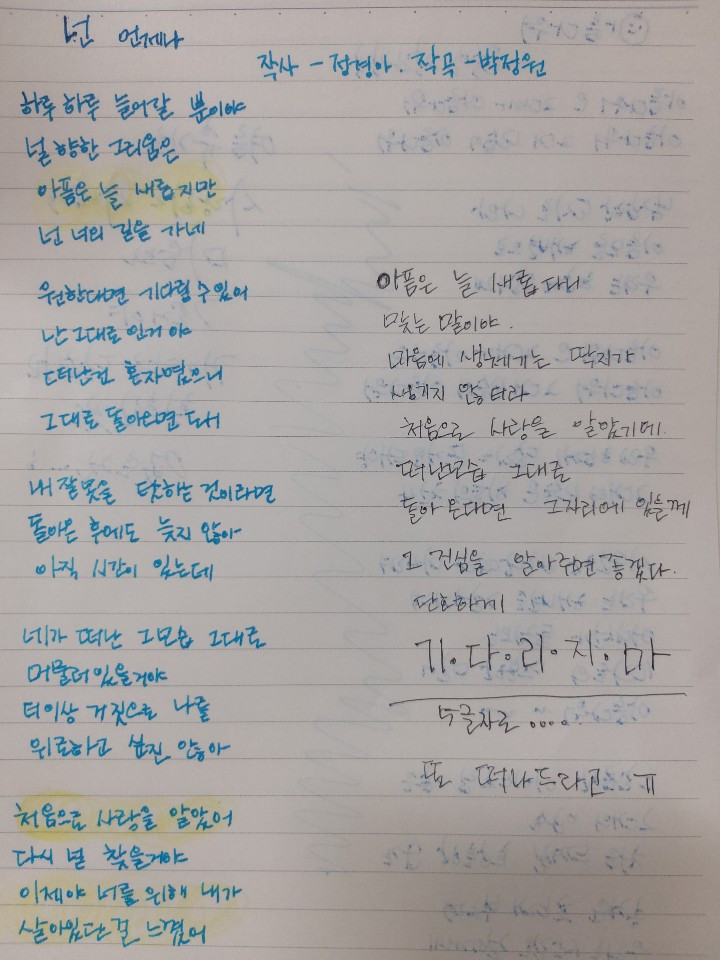 넌 언제나
작사 - 정경아. 작곡 - 박정원
하루하루 늘어갈 뿐이야
널 향한 그리움은
아픔은 늘 새롭지만
넌 너의 길을 가네
원한다면 기다릴 수 있어
난 그대로 인거야
떠난건 혼자였으니
그대로 돌아오면 돼
내 잘못을 탓하는 것이라면
돌아온 후에도 늦지 않아
아직 시간이 있는데
네가 떠난 그모습 그대로
머물러 있을거야
더이상 거짓으로 나를
위로하고 싶진 않아
처음으로 사랑을 알았어
다시 널 찾을거야
이제야 너를 위해 내가
살아있단걸 느꼈어
아픔은 늘 새롭다니
맞는 말이야.
마음에 생체기는 딱지가
생기지 않터라
처음으로 사랑을 알았기에.
떠난모습 그대로
돌아 온다면 그자리에 있을께
그 진심을 알아주면 좋겠다.
단호하게
기·다·리·지·마
5글자로 ....
또 떠나드라고 ㅠ